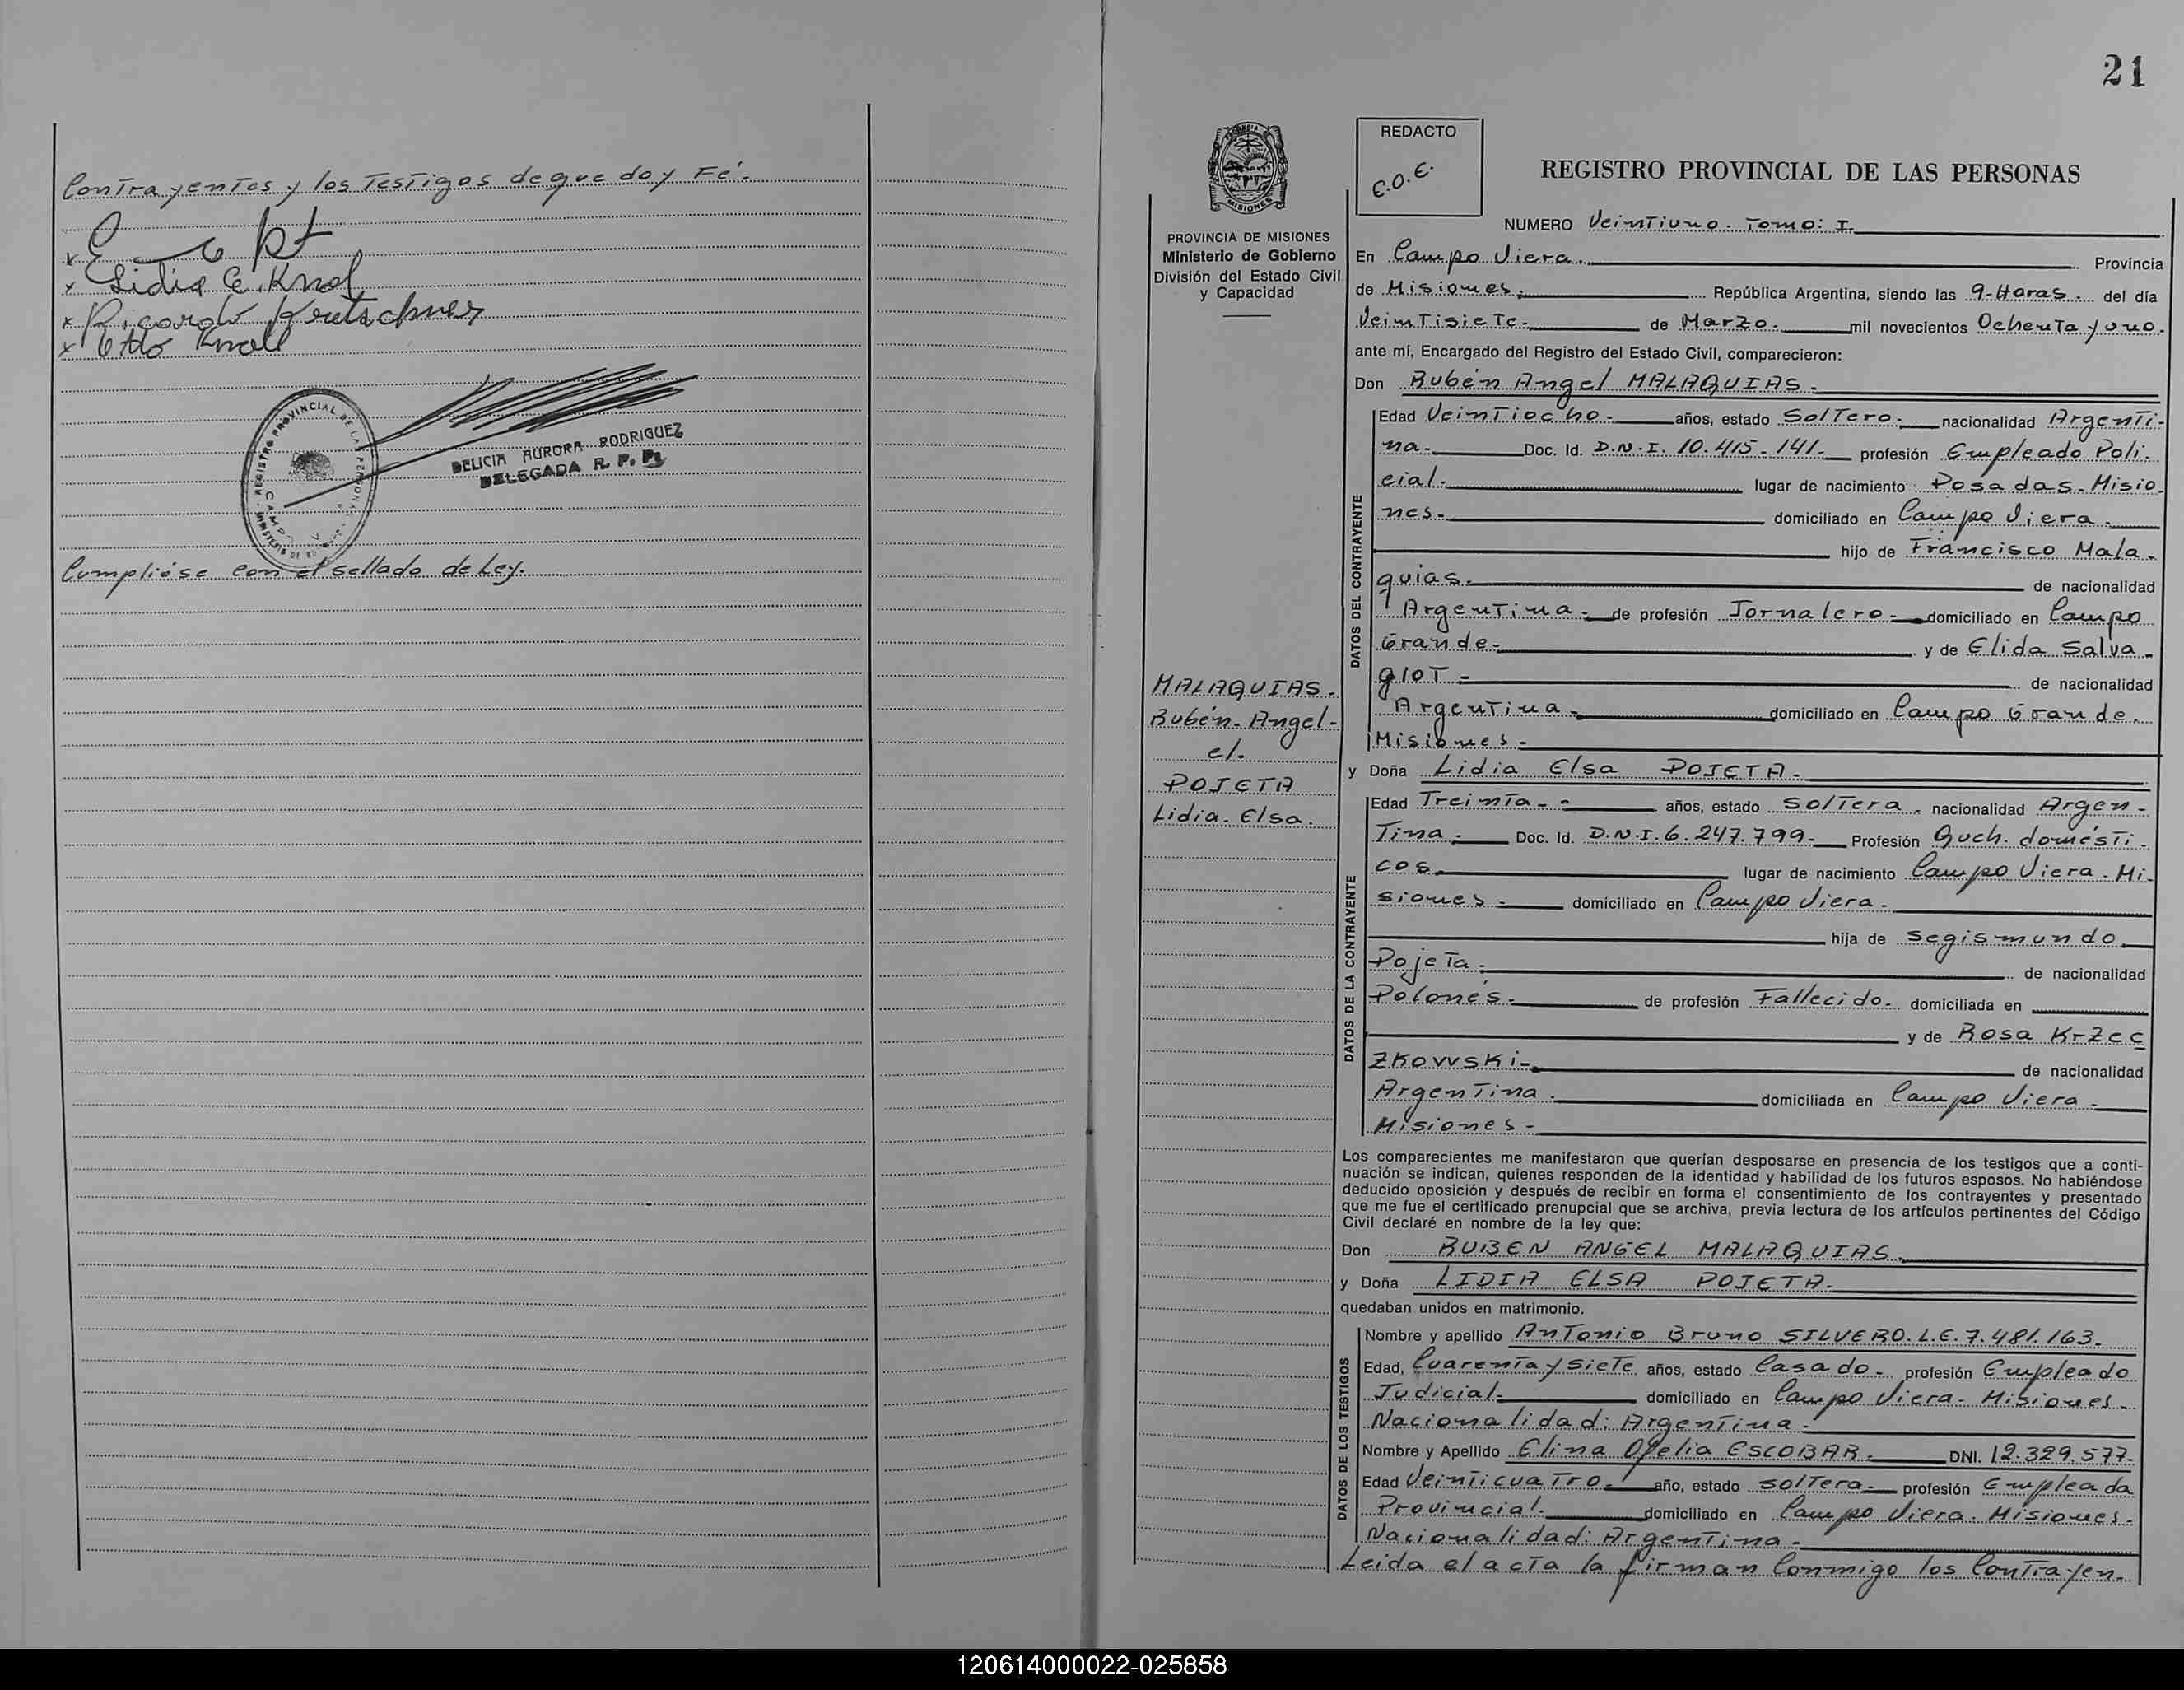 Contrayentes y los Testigos de que doy Fé.
x
x Lidia E. Knol
x Ricardo Kretschmer
x Otto Knoll
REGISTRO PROVINCIAL DE LAS PERSONAS
DELICIA AURORA RODRIGUEZ
DELEGADA R. P. P.
Cumplióse con el sellado de Ley.
21
PROVINCIA DE MISIONES
Ministerio de Gobierno
División del Estado Civil
y Capacidad
MALAQUIAS.
Rubén-Angel-
c/.
POJETA
Lidia-Elsa.
REDACTO
C.O.E.
REGISTRO PROVINCIAL DE LAS PERSONAS
NUMERO Veintiuno. Tomo: I.
En Campo Viera. Provincia
de Misiones. República Argentina, siendo las 9-Horas. del día
Veintisiete- de Marzo. mil novecientos Ochenta y uno.
ante mí, Encargado del Registro del Estado Civil, comparecieron:
Don Rubén Angel MALAQUIAS.
DATOS DEL CONTRAYENTE
Edad Veintiocho- años, estado Soltero. nacionalidad Argenti-
na- Doc. Id. D.N.I. 10.415.141- profesión Empleado Poli-
cial. lugar de nacimiento Posadas-Misio-
nes- domiciliado en Campo Viera.
hijo de Francisco Mala-
quias- de nacionalidad
Argentina- de profesión Jornalero- domiciliado en Campo
Grande- y de Elida Salva-
giot- de nacionalidad
Argentina- domiciliado en Campo Grande.
Misiones-
y Doña Lidia Elsa POJETA-
DATOS DE LA CONTRAYENTE
Edad Treinta-- años, estado Soltera. nacionalidad Argen-
tina. Doc. Id. D.N.I. 6.247.799- Profesión Queh. domésti-
cos. lugar de nacimiento Campo Viera-Mi-
siones- domiciliado en Campo Viera.
hija de Segismundo
Pojeta. de nacionalidad
Polonés- de profesión Fallecido. domiciliada en
y de Rosa Krzec
zkowski- de nacionalidad
Argentina. domiciliada en Campo Viera-
Misiones-
Los comparecientes me manifestaron que querían desposarse en presencia de los testigos que a conti-
nuación se indican, quienes responden de la identidad y habilidad de los futuros esposos. No habiéndose
deducido oposición y después de recibir en forma el consentimiento de los contrayentes y presentado
que me fue el certificado prenupcial que se archiva, previa lectura de los artículos pertinentes del Código
Civil declaré en nombre de la ley que:
Don RUBEN ANGEL MALAQUIAS.
y Doña LIDIA ELSA POJETA.
quedaban unidos en matrimonio.
DATOS DE LOS TESTIGOS
Nombre y apellido Antonio Bruno SILVERO. L.E. 7.481.163-
Edad, Cuarenta y siete años, estado Casado- profesión Empleado
Judicial- domiciliado en Campo Viera-Misiones-
Nacionalidad: Argentina.
Nombre y Apellido Elina Ofelia ESCOBAR- DNI. 12.329.577-
Edad Veinticuatro- año, estado soltera- profesión Empleada
Provincial- domiciliado en Campo Viera. Misiones-
Nacionalidad: Argentina-
Leida el acta la firman conmigo los Contrayen-
120614000022-025858